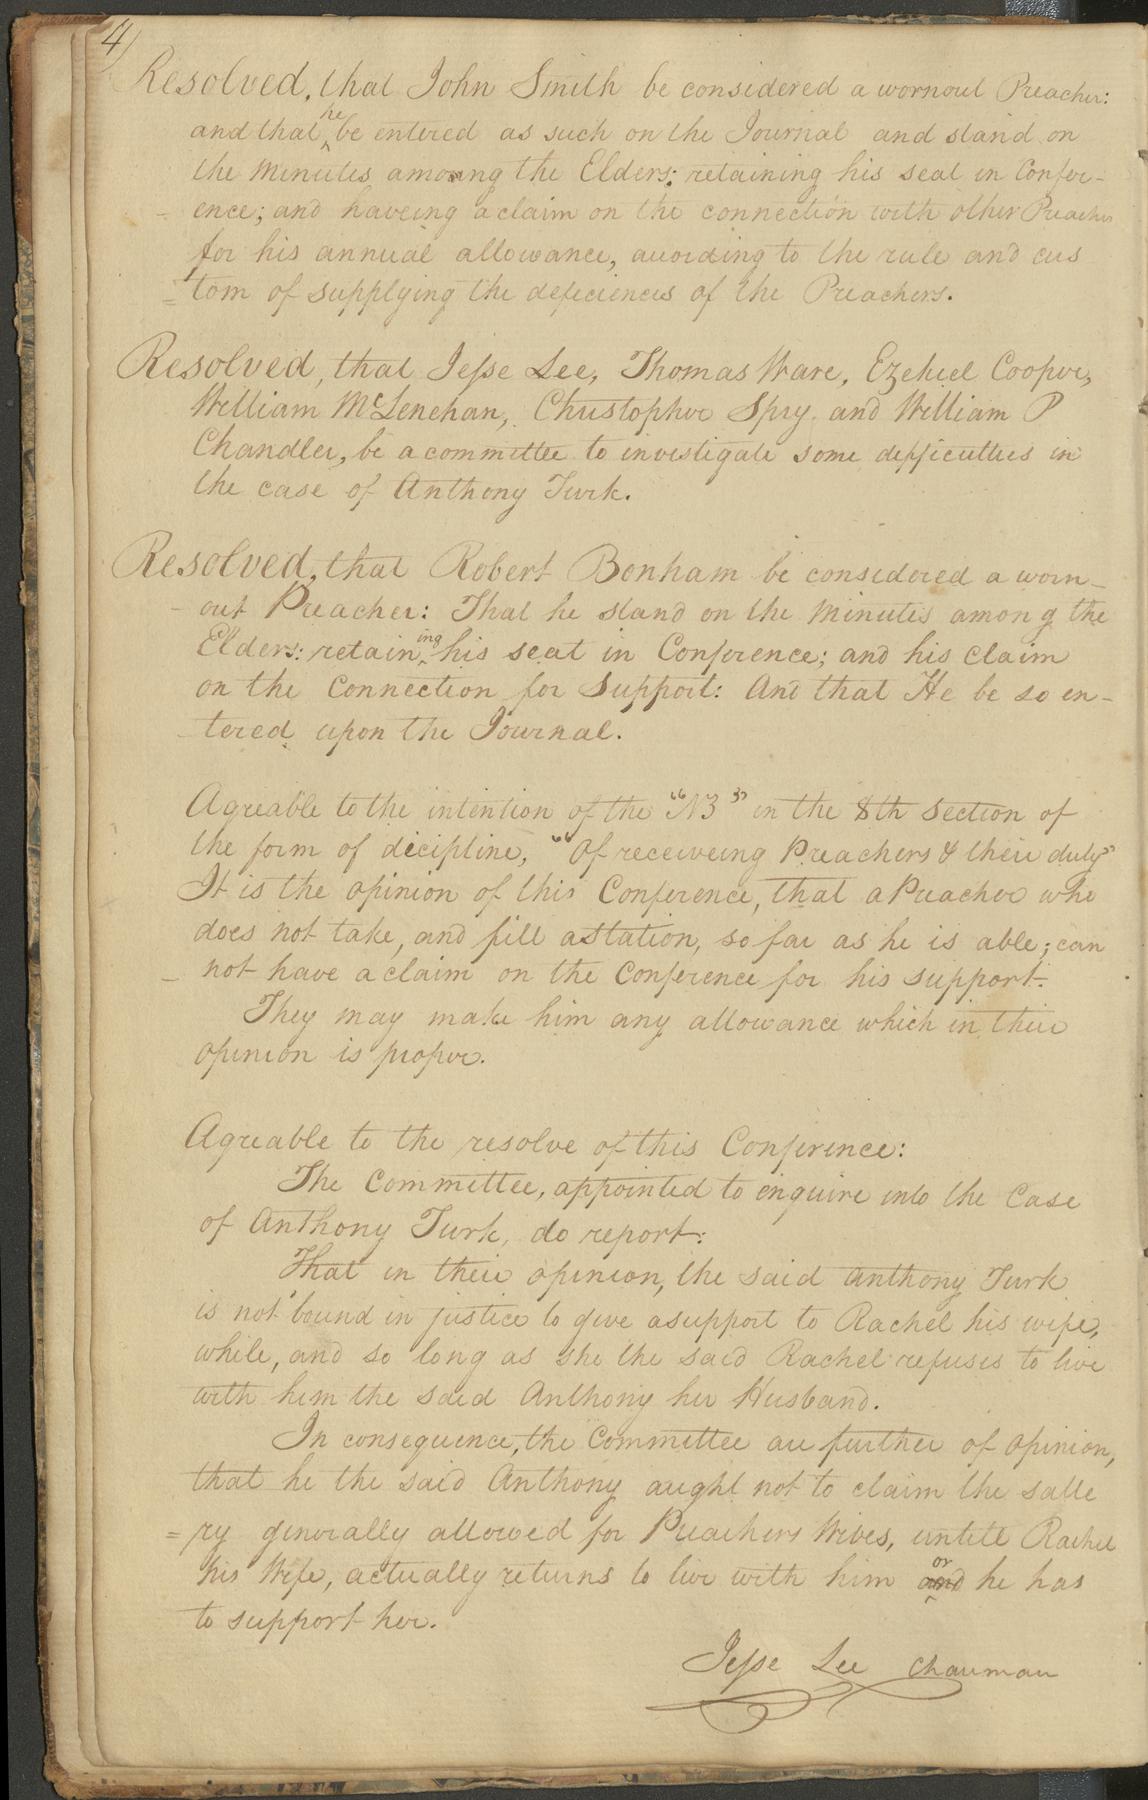 4)
Resolved, that John Smith be considered a wornout Preacher:
and that he be entered as such on the Journal and stand on
the Minutes among the Elders; retaining his seat in Confer-
= ence; and haveing a claim on the connection with other Preachers
for his annual allowance, according to the rule and cus
= tom of supplying the deficiences of the Preachers.
Resolved, that Jesse Lee, Thomas Ware, Ezekiel Cooper,
William McLenehan, Christopher Spry and William P
Chandler, be a committee to investigate some difficulties in
the case of Anthony Turk.
Resolved, that Robert Bonham be considered a worn-
- out Preacher: That he stand on the Minutes among the
Elders: retaining his seat in Conference; and his claim
on the Connection for Support: And that He be so en-
- tered upon the Journal.
Agreable to the intention of the "NB" in the 8th Section of
the form of dicipline, "Of receiveing Preachers & their duty"
It is the opinion of this Conference, that a Preacher who
does not take, and fill a station, so far as he is able; can
- not have a claim on the Conference for his support.
They may make him any allowance which in their
opinion is proper.
Agreable to the resolve of this Conference:
The Committee, appointed to enquire into the Case
of Anthony Turk, do report:
That in their opinion, the said Anthony Turk
is not bound in justice to give a support to Rachel his wife,
while, and so long as she the said Rachel refuses to live
with him the said Anthony her Husband.
In consequence, the Committee are further of opinion,
that he the said Anthony aught not to claim the salle
= ry generally allowed for Preachers Wives, untill Rachel
his Wife, actually returns to live with him and or he has
to support her.
Jesse Lee Chairman